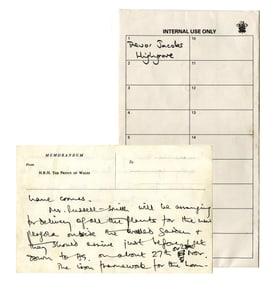 INTERNAL USE ONLY
1
10
Trevor Jacobs
Highgrove
MEMORANDUM
From
To
H.R.H. THE PRINCE OF WALES
have comes.
Mrs. Russell-Smith will be arranging
for delivery of all the plants for the new
pergola outside the Walled Garden &
they should arrive just before I get
down to on about 27th Nov.
The iron framework for the